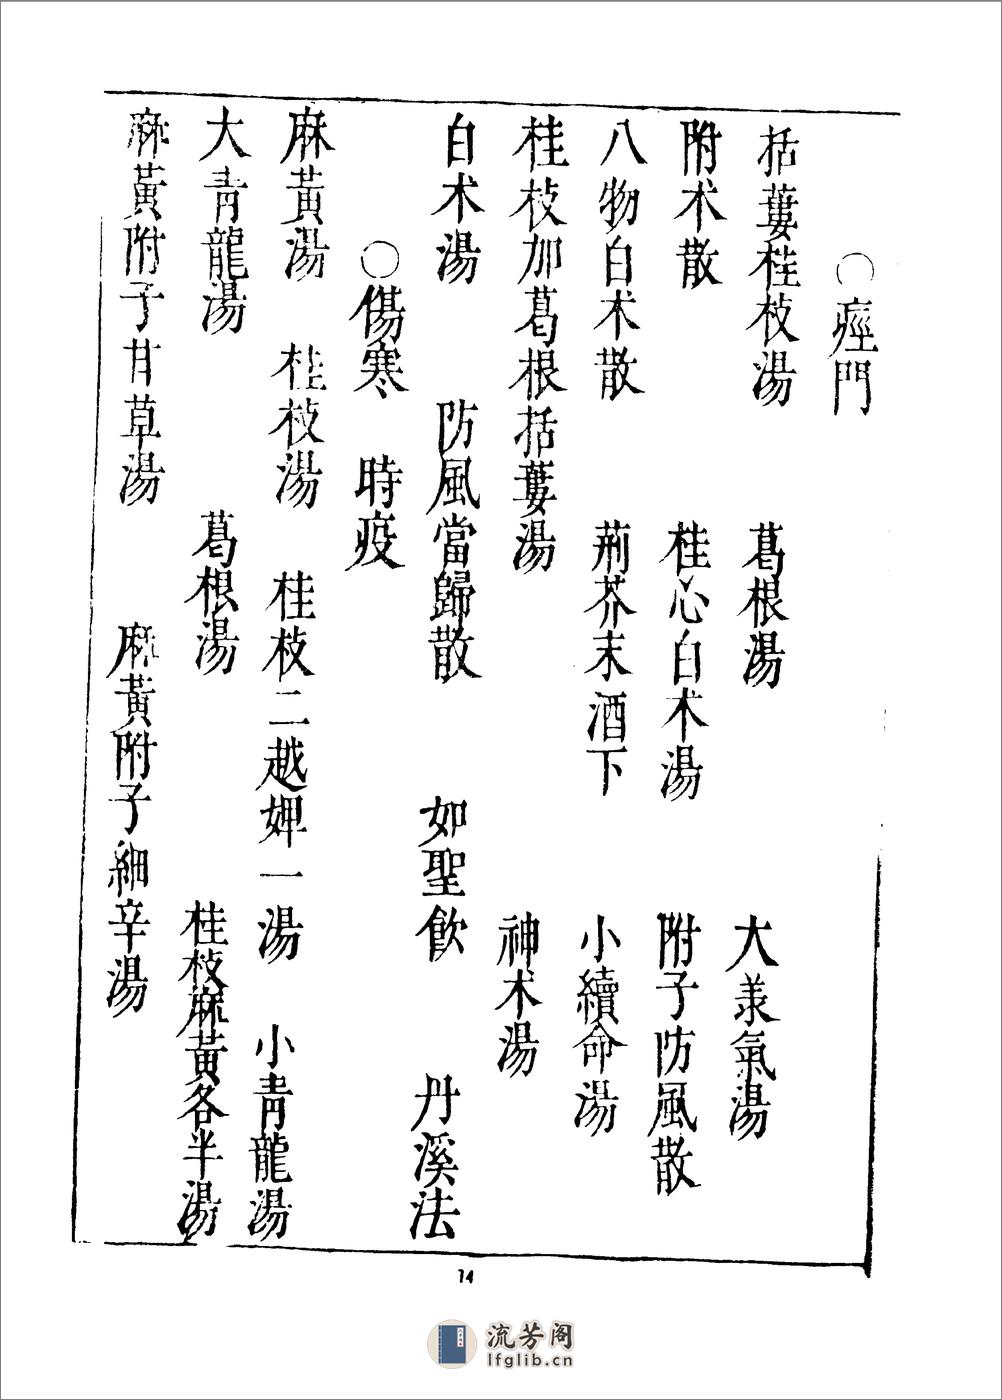 ○痙門
括蔞桂枝湯 葛根湯 大羕氣湯
附术散 桂心白术湯 附子防風散
八物白术散 荊芥末酒下 小續命湯
桂枝加葛根括蔞湯 神术湯
白术湯 防風當歸散 如聖飲 丹溪法
○傷寒 時疫
麻黃湯 桂枝湯 桂枝二越婢一湯 小青龍湯
大青龍湯 葛根湯 桂枝麻黃各半湯
麻黃附子甘草湯 麻黃附子細辛湯
74
流芳阁
lfglib.cn